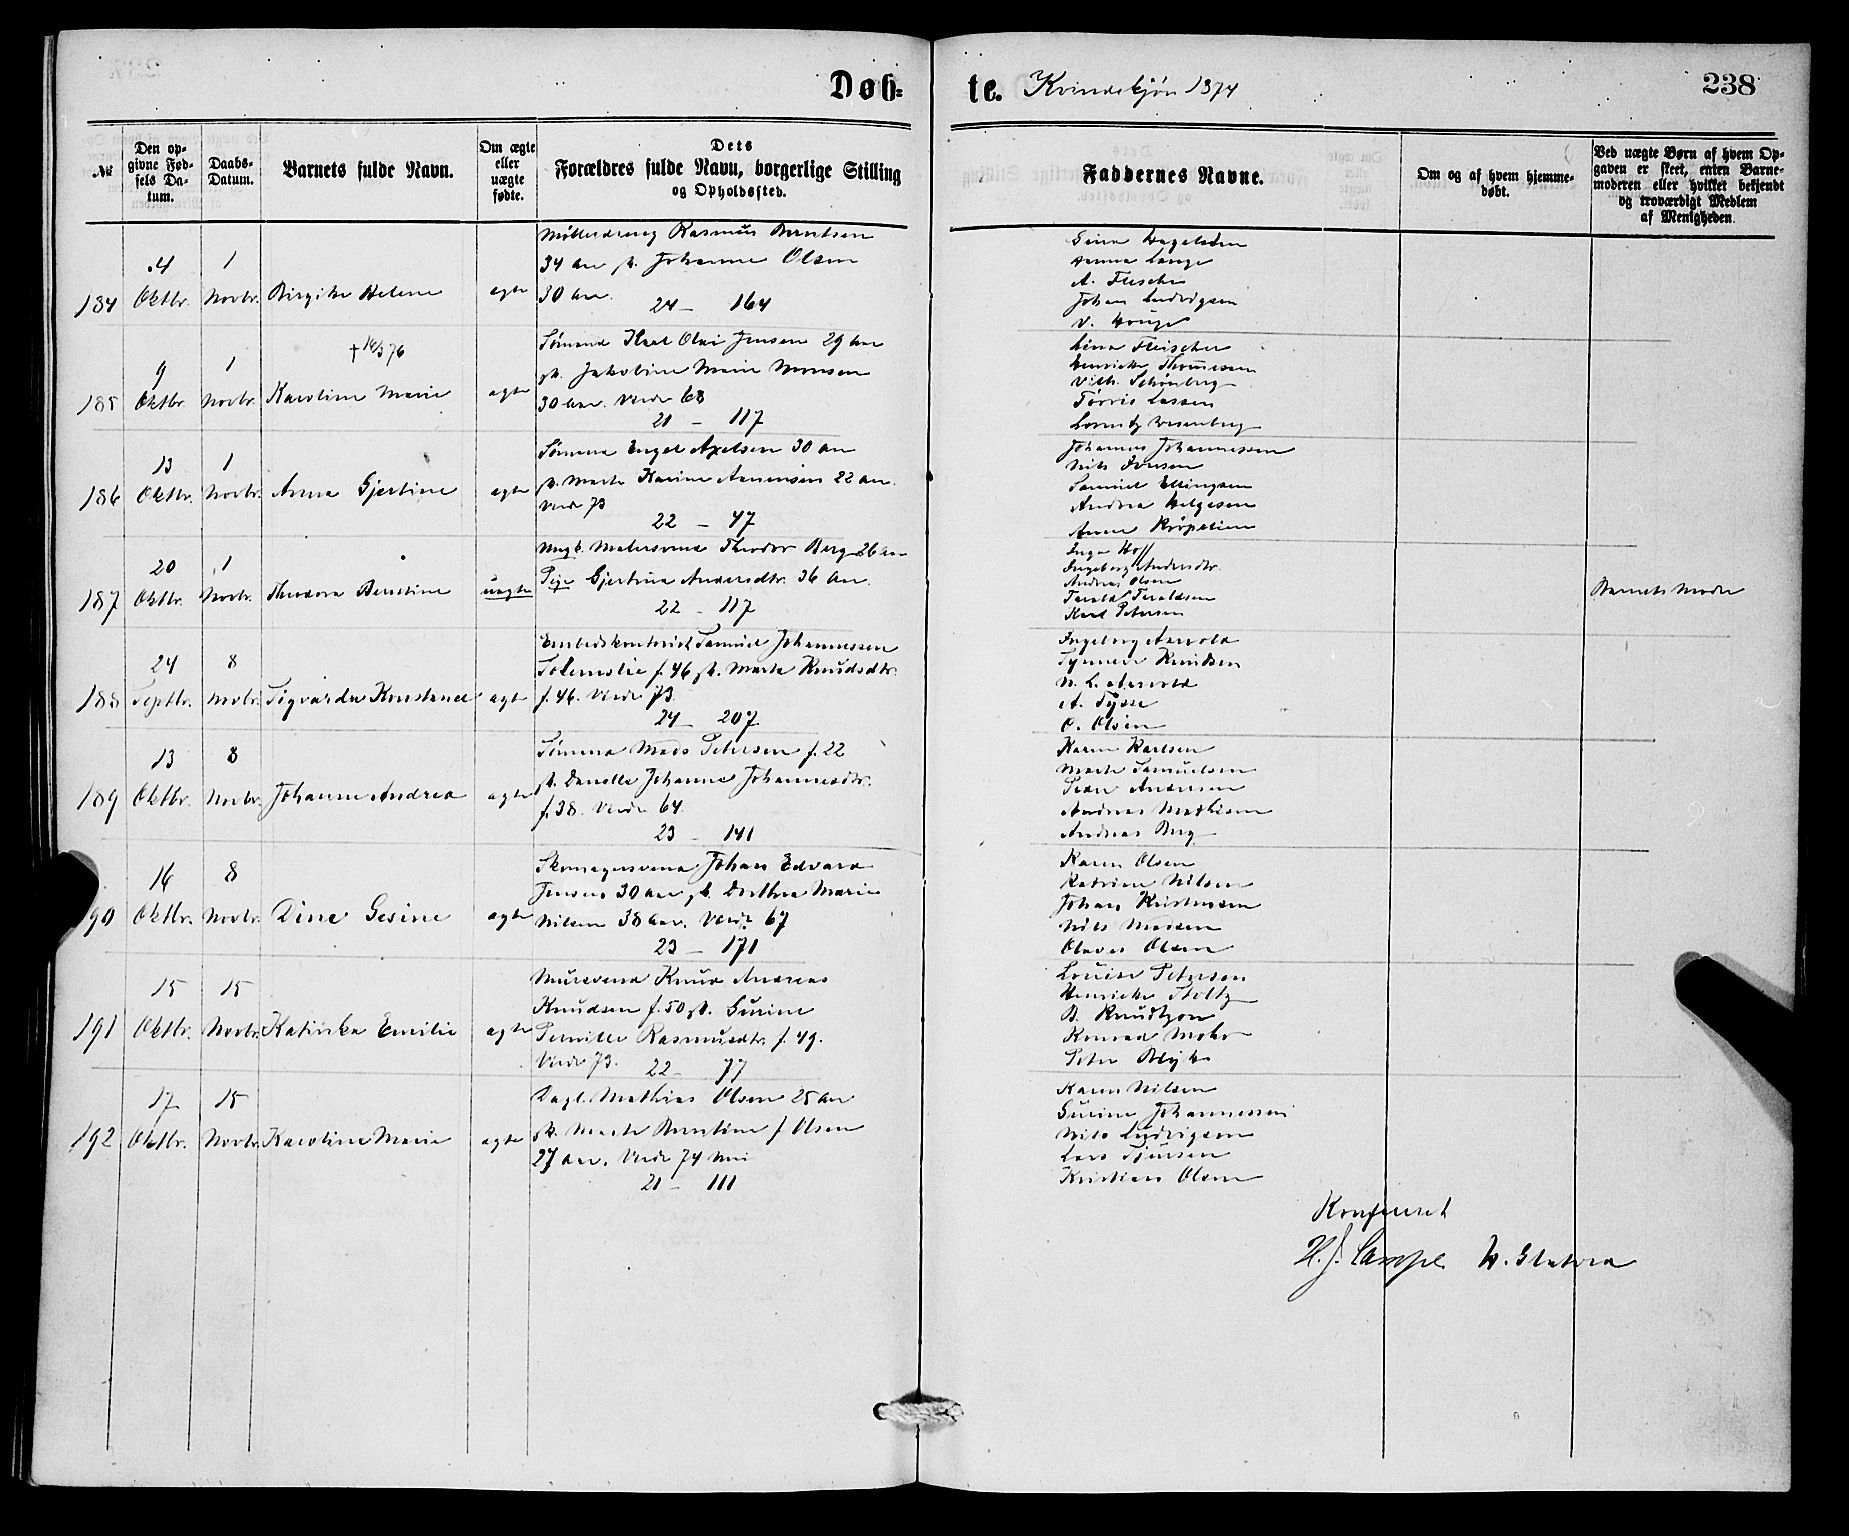 Døb-
te. Kvindekjøn 1874
238
№
Den op-
givne Fød-
sels Da-
tum.
Daabs-
Datum.
Barnets fulde Navn.
Om ægte
eller
uægte
fødte.
Dets
Forældres fulde Navn, borgerlige Stilling
og Opholdssted.
Faddernes Navne.
Om og af hvem hjemme-
døbt.
Ved uægte Børn af hvem Op-
gaven er skeet, enten Barne-
moderen eller hvilket bekjendt
og troværdigt Medlem
af Menigheden.
184
4
Oktbr.
1
Novbr.
Birgitte Helene
ægte
Møllerdreng Rasmus Berntsen
34 Aar h. Johanne Olsen
30 Aar.
24 - 164
Lina
Anna Lange
A. Fleischer
Johan Ludvigsen
V.
185
9
Oktbr.
1
Novbr.
† 16/3 76
Karoline Marie
ægte
Sømand Karl Olai Jensen 29 Aar
h. Jakobine Marie Monsen
30 Aar. Viede 68
21 - 117
Lina Fleischer
Henriette Thomessen
Vilh. Schønberg
Tørris Lassen
Lorentz Wesenberg
186
13
Oktbr.
1
Novbr.
Anna Gjertine
ægte
Sømand Engel Axelsen 30 Aar
h. Marte Karine Aanensen 22 Aar.
Viede 73
22 - 47
Johannes Johannessen
Nils Iversen
Samuel Ellingsen
Andrea Helgesen
Anne
187
20
Oktbr.
1
Novbr.
Theodora Berntine
uægte
Ungk. Malersvend Theodor Berg 26 Aar
Pige Gjertine Andersdtr. 36 Aar.
22 - 117
Inga Hoff
Ingeborg Andersdtr.
Andreas Olsen
Tarald Taraldsen
Karl Petersen
Barnets Moder
188
24
Septbr.
8
Novbr.
Sigvarda Konstance
ægte
Embedskontorist Samuel Johannessen
f. 46 h. Marte Knudsdtr.
f. 46. Viede 73.
24 - 207
Ingeborg Aarvold
Synneve Knudsen
N. L. Aarvold
A. Tysse
O. Olsen
189
13
Oktbr.
8
Novbr.
Johanne Andrea
ægte
Sømand Mads Petersen f. 22
h. Danolla Johanne Johannesdtr.
f. 38. Viede 64.
23 - 141
Karen Karlsen
Marte Samuelsen
Peder Andersen
Andreas Mathisen
Andreas Berg
190
16
Oktbr.
8
Novbr.
Dine Gesine
ægte
Skomagersvend Johan Edvard
Jensen 30 Aar h. Dorthea Marie
Nilsen 38 Aar. Viede 67
23 - 171
Karen Olsen
Katrine Nilsen
Johan Kristensen
Nils Madsen
Olaves Olsen
191
15
Oktbr.
15
Novbr.
Katinka Emilie
ægte
Mursvend Knud Andreas
Knudsen f. 50 h. Gurine
Pernille Rasmusdtr. f. 49.
Viede 73.
22 - 77
Louise Petersen
Henriette Stoltz
B. Knudtzon
Konrad Mohr
Peter Blytt
192
17
Oktbr.
15
Novbr.
Karoline Marie
ægte
Dagl. Mathias Olsen 25 Aar
h. Marte Berntine f Olsen
27 Aar. Viede 74 Mai
21 - 111
Karen Nilsen
Gurine Johannessen
Nils Ludvigsen
Lars Sjursen
Kristian Olsen
Konfereret
H. J.